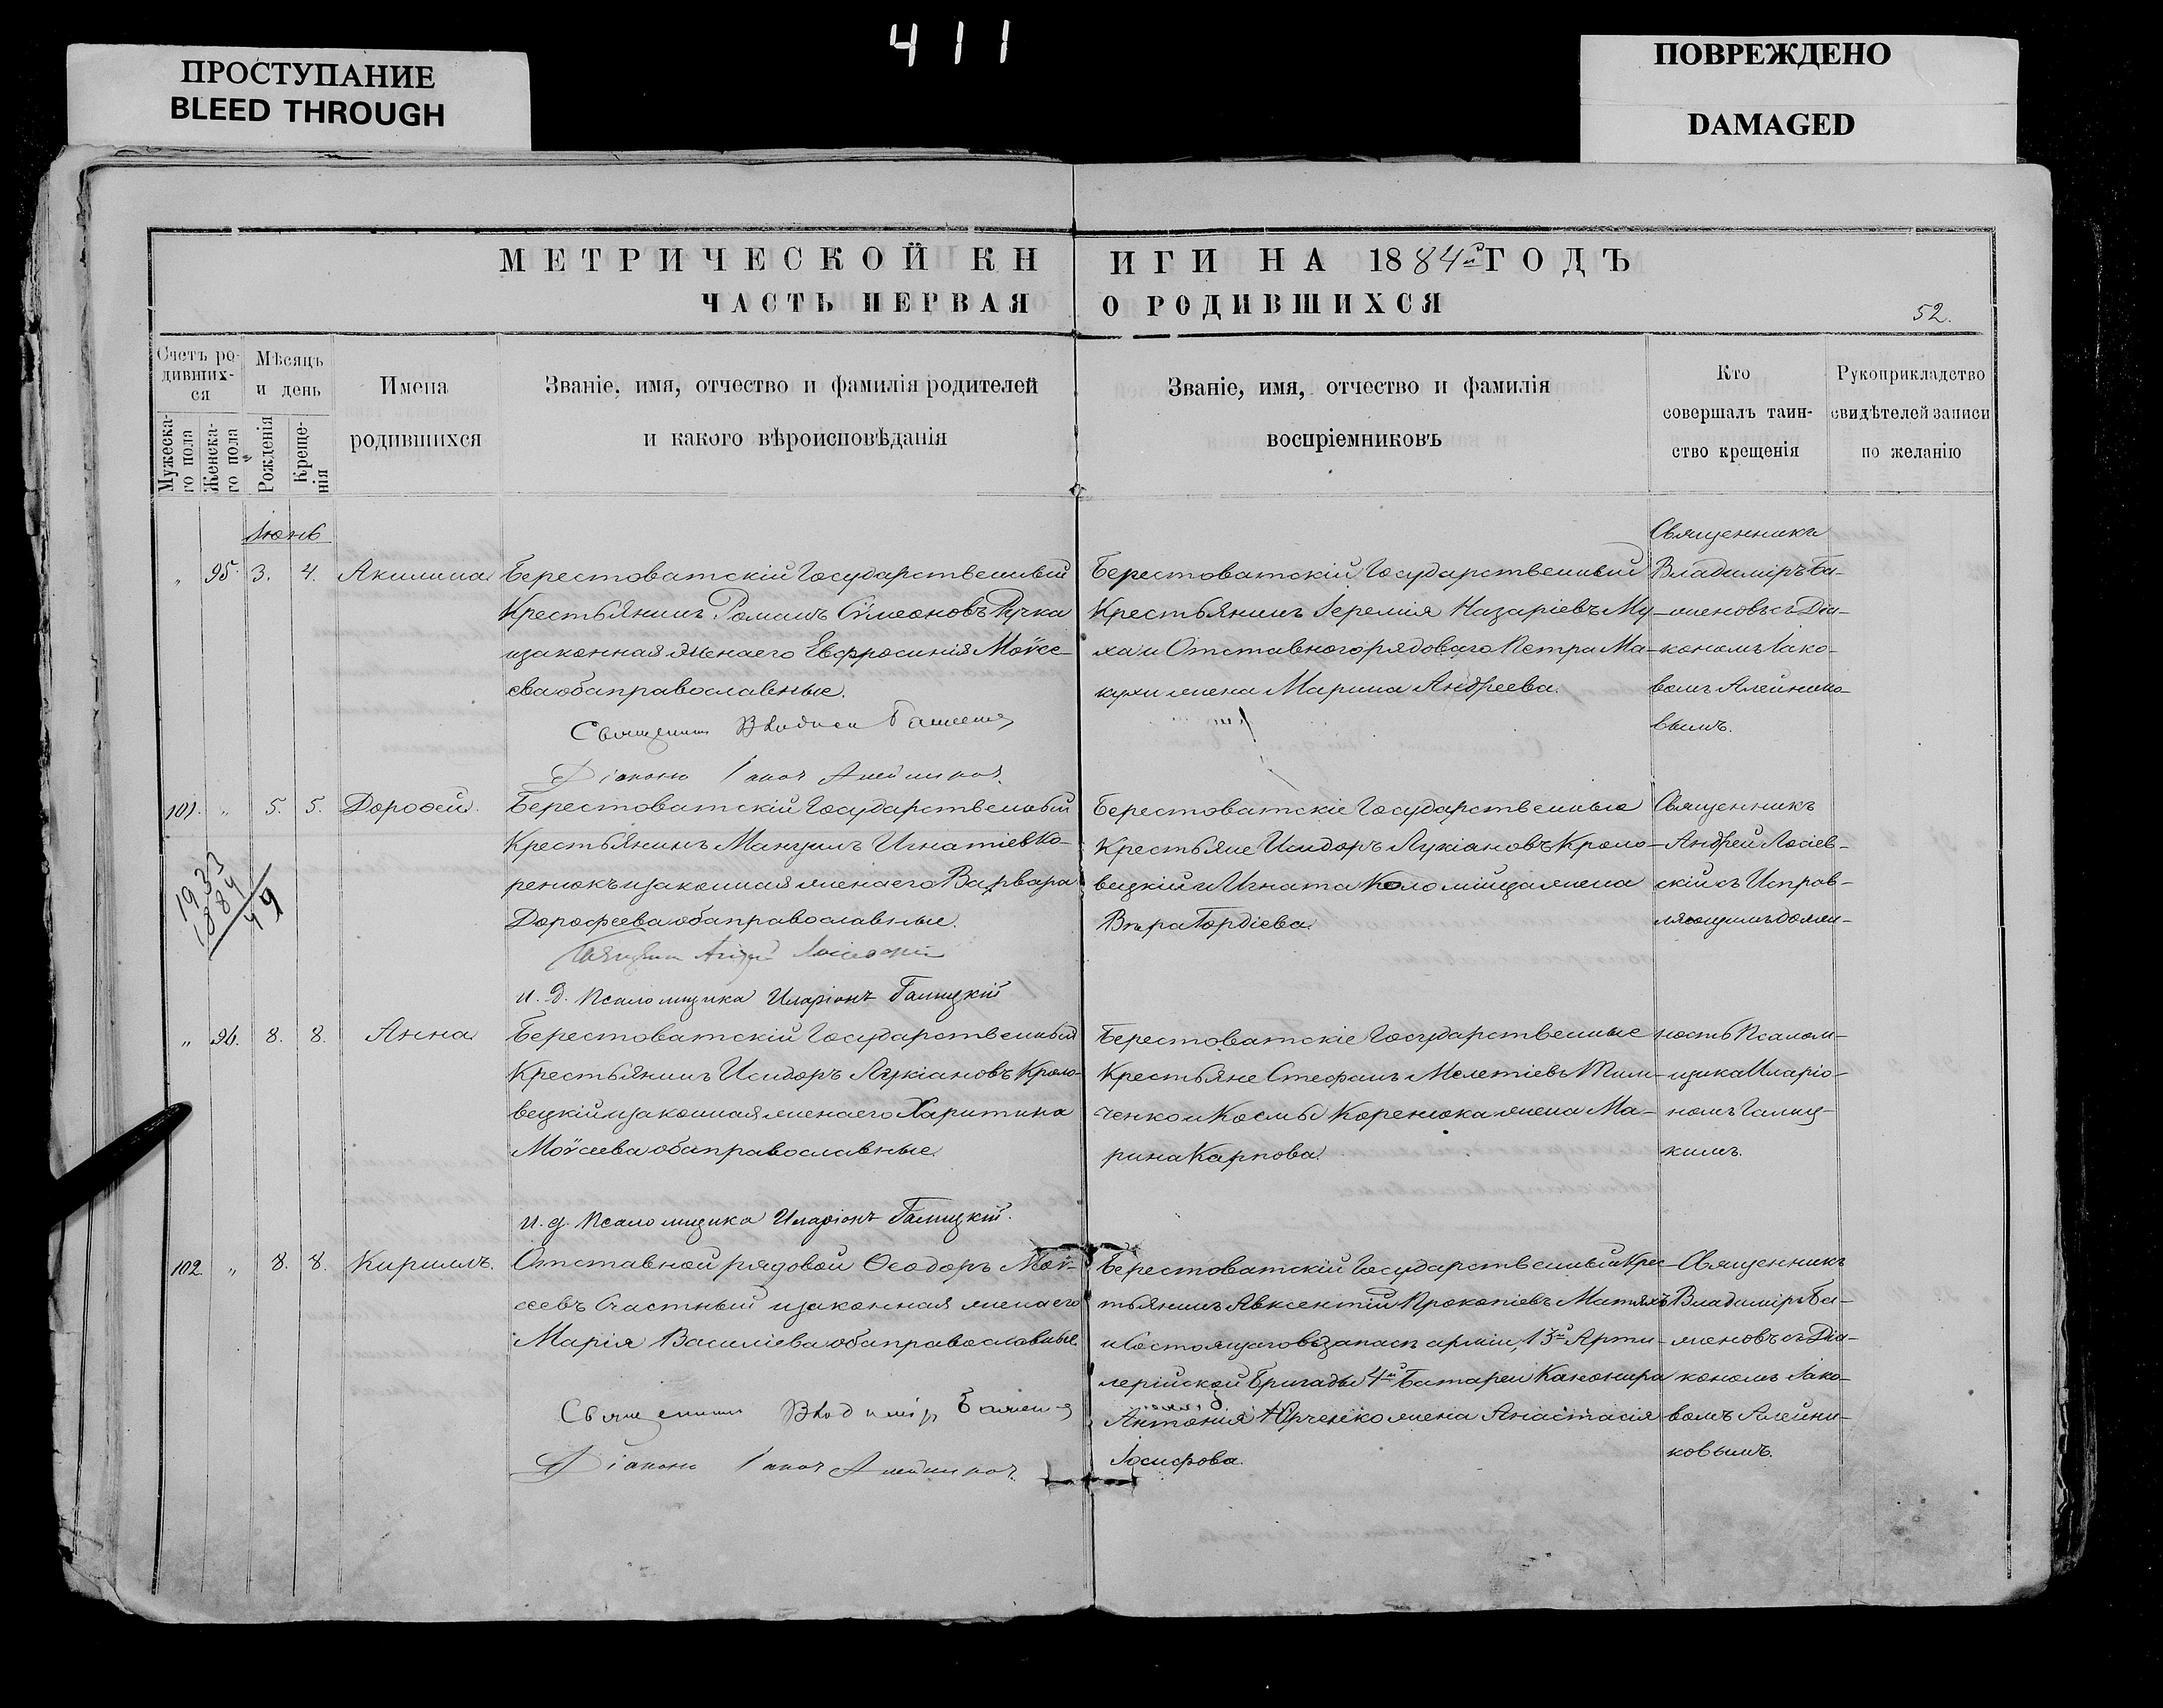 411
ПРОСТУПАНИЕ
BLEED THROUGH
ПОВРЕЖДЕНО
DAMAGED
МЕТРИЧЕСКОЙ КНИГИ НА 1884й ГОДЪ
ЧАСТЬ ПЕРВАЯ О РОДИВШИХСЯ
52.
Счетъ ро-
дивших-
ся
Мужеска-
го пола
Женска-
го пола
Мѣсяцъ
и день
Рожденія
Креще-
нія
Имена
родившихся
Званіе, имя, отчество и фамилія родителей
и какого вѣроисповѣданія
Званіе, имя, отчество и фамилія
воспріемниковъ
Кто
совершалъ таин-
ство крещенія
Рукоприкладство
свидѣтелей записи
по желанію
Іюнь
„ 95. 3. 4. Акилина
Берестоватскій Государственный
Крестьянинъ Романъ Сѵмеоновъ Ручка
и законная жена его Евфросинія Моѵсе-
ева оба православные.
Священникъ Владиміръ
Діаконъ Іаковъ Алейниковъ
Берестоватскій Государственный
Крестьянинъ Іеремія Назаріевъ Му-
ха и Отставного рядоваго Петра Ма-
кухи жена Марина Андреева.
Священникъ
Владиміръ Ба-
женовъ съ Діа-
кономъ Іако-
вомъ Алейнико-
вымъ.
101. „ 5. 5. Дороѳей.
1933
1884
49
Берестоватскій Государственный
Крестьянинъ Мануилъ Игнатіевъ Ко-
ренюкъ и законная жена его Варвара
Дорофеева оба православные.
Священникъ Андрей Лосіевскій
и. д. Псаломщика Иларіонъ Галицкій
Берестоватскіе Государственные
Крестьяне Исидоръ Лукіановъ Кроло-
вецкій и Игната Коломійца жена
Вѣра Гордіева.
Священникъ
Андрей Лосіев-
скій съ Исправ-
ляющимъ долж-
„ 96. 8. 8. Анна
Берестоватскій Государственный
Крестьянинъ Исидоръ Лукіановъ Кроло-
вецкій и законная жена его Харитина
Моѵсеева оба православные.
и. д. Псаломщика Иларіонъ Галицкій.
Берестоватскіе Государственные
Крестьяне Стефанъ Мелетіевъ Тим-
ченко и Космы Коренюка жена Ма-
рина Карпова.
ность Псалом-
щика Иларіо-
номъ Галиц-
кимъ.
102. „ 8. 8. Кириллъ.
Отставной рядовой Ѳеодоръ Моѵ-
сеевъ Счастный и законная жена его
Марія Василіева оба православные
Священникъ Владиміръ
Діаконъ Іаковъ Алейниковъ
Берестоватскій Государственный Крес-
тьянинъ Авксентій Прокопіевъ Матяхъ
и Состоящаго въ запасѣ арміи, 13й Арти-
лерійской Бригады 4й Батареи Канонира
Антонія Юрченко жена Анастасія
Іосифова.
Священникъ
Владиміръ Ба-
женовъ съ Діа-
кономъ Іако-
вомъ Алейни-
ковымъ.